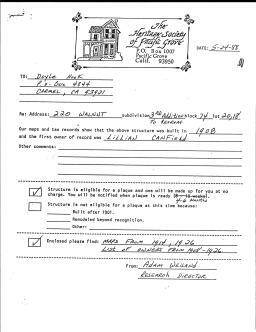 The
Heritage Society
of Pacific Grove
P.O. Box 1007
Pacific Grove
Calif. 93950
DATE: 5-24-88
TO: Doyle Hook
P.O. Box 4844
Carmel, CA 93921
Re: Address: 220 Walnut subdivision 3rd Addition block 24 lot 20,18
to Retreat
Our maps and tax records show that the above structure was built in 1908
and the first owner of record was Lillian Canfield
Other comments:
Structure is eligible for a plaque and one will be made up for you at no
charge. You will be notified when plaque is ready
4-6 months
Structure is not eligible for a plaque at this time because:
Built after 1901.
Remodeled beyond recognition.
Other:
Enclosed please find: Maps from 1914, 1926
List of owners from 1908-1926
From: Adam Weiland
Research Director